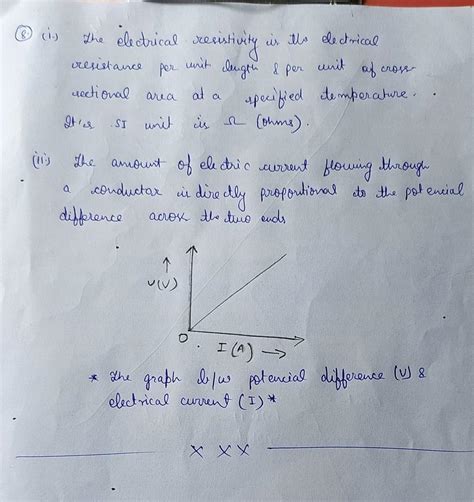 ⑧ (i.) The electrical resistivity is the electrical
resistance per unit length & per unit of cross-
sectional area at a specified temperature.
It's SI unit is Ω (ohms).
(ii) The amount of electric current flowing through
a conductor is directly proportional to the potencial
difference across the two ends
↑
V(V)
O
I (A) →
* The graph b/w potencial difference (V) &
electrical current (I) *
x x x